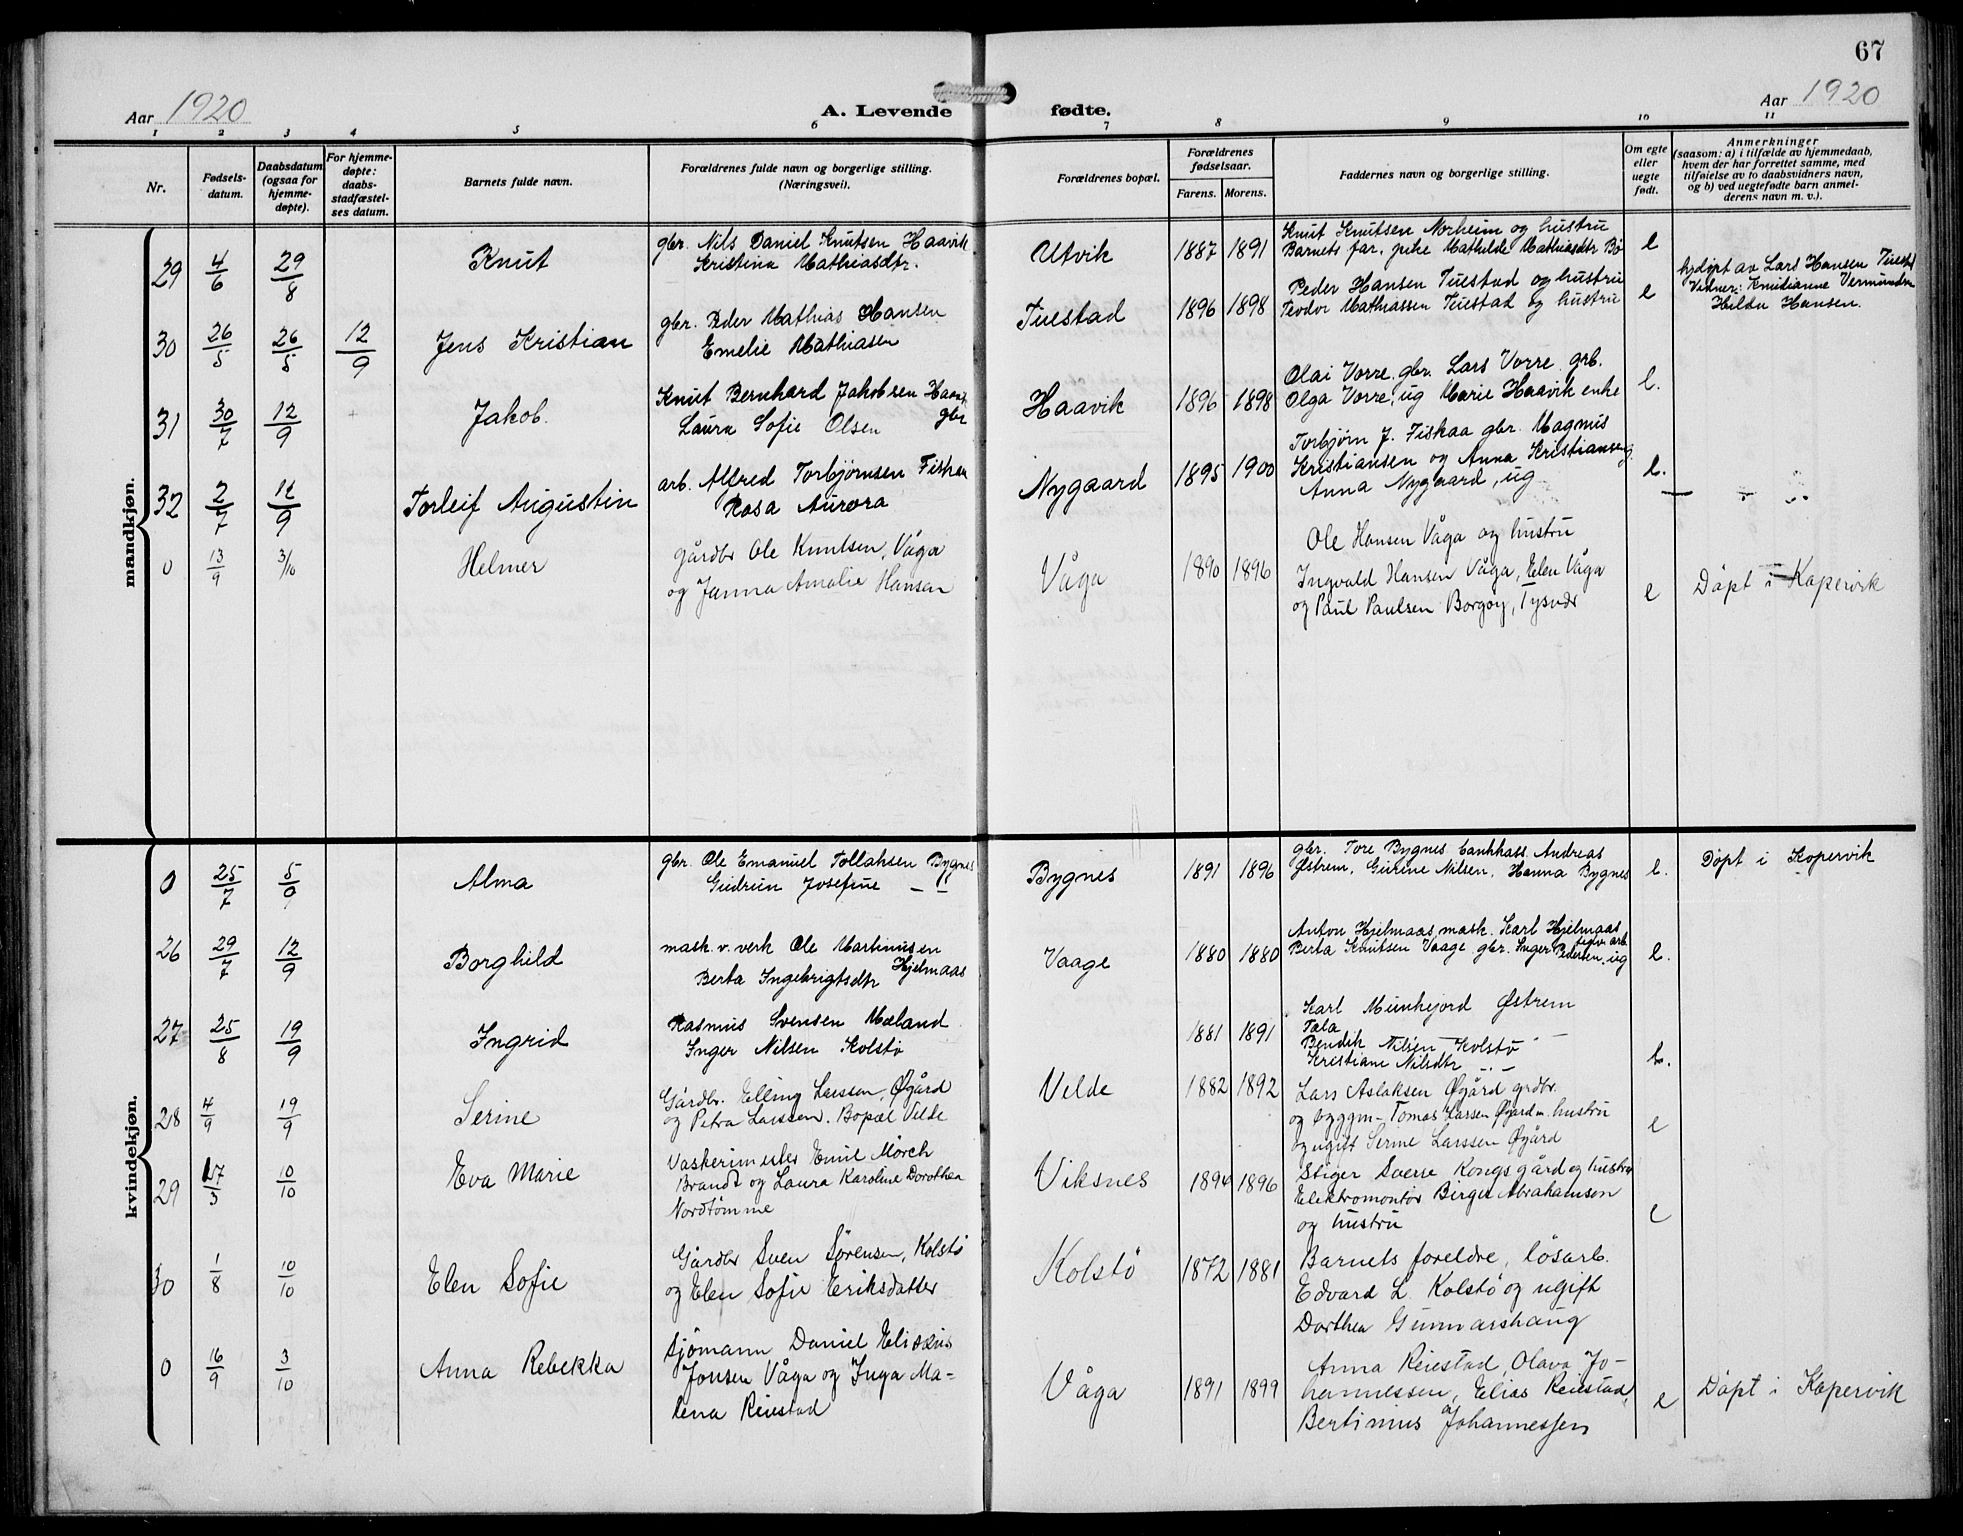 67
Aar 1920
A. Levende fødte.
Aar 1920
1 2 3 4 5 6 7 8 9 10 11
Nr.
Fødsels-
datum.
Daabsdatum
(ogsaa for
hjemme-
døpte).
For hjemme-
døpte:
daabs-
stadfæstel-
ses datum.
Barnets fulde navn.
Forældrenes fulde navn og borgerlige stilling.
(Næringsvei).
Forældrenes bopæl.
Forældrenes
fødselsaar.
Farens. Morens.
Faddernes navn og borgerlige stilling.
Om egte
eller
uegte
født.
Anmerkninger
(saasom: a) i tilfælde av hjemmedaab,
hvem der har forrettet samme, med
tilføielse av to daabsvidners navn,
og b) ved uegtefødte barn anmel-
derens navn m. v.).
mandkjøn.
29 4/6 29/8 Knut
gbr. Nils Daniel Knutsen Haavik
Kristina Mathiasdtr.
Utvik 1887 1891
Knut Knutsen Norheim og hustru
Barnets far, pike Mathilde Mathiasdtr Bø
e
30 26/5 26/5 12/9 Jens Kristian
gbr. Peder Mathias Hansen
Emelie Mathiasen
Tuestad 1896 1898
Peder Hansen Tuestad og hustru
Teodor Mathiassen Tuestad og hustru
e
hjdøpt av Lars Hansen Tuestad
Vidner: Knutianne
Hilda Hansen.
31 30/7 12/9 Jakob.
Knut Bernhard Jakobsen Haavik
gbr
Laura Sofie Olsen
Haavik 1896 1898
Olai Vorre, gbr. Lars Vorre, grb.
Olga Vorre, ug Marie Haavik enke
e.
32 2/7 12/9 Torleif Augustin
arb. Alfred Torbjørnsen Fiskaa
Rosa Aurora
Nygaard 1895 1900
Torbjørn J. Fiskaa gbr. Magnus
Kristiansen og Anna Kristiansen
Anna Nygaard, ug
e.
0 13/9 3/10 Helmer
gårdbr Ole Knutsen, Våga
og Janna Amalie Hansen
Våga 1890 1896
Ole Hansen Våga og hustru
Ingvald Hansen Våga, Elen Våga
og Paul Paulsen Borgøy, Tysvær
e
Døpt i Kopervik
kvindekjøn.
0 25/7 5/9 Alma
gbr. Ole Emanuel Tollaksen Bygnes
Gudrun Josefine — " —
Bygnes 1891 1896
gbr. Tore Bygnes bankkass. Andreas
Østrem, Gurine Nilsen, Hanna Bygnes
e.
Døpt i Kopervik
26 29/7 12/9 Borghild
mask. v. verk Ole Martinusen
Hjelmaas
Berta Ingebrigtsdtr
Vaage 1880 1880
Anton Hjelmaas, mask. Karl Hjelmaas
arb.
Berta Knutsen Vaage gbr. Inger Pedersen, ug
e.
27 25/8 19/9 Ingrid
Rasmus Svensen Mæland
Inger Nilsen Kolstø
1881 1891
Karl Munkejord Østrem
Tala
Bendik Nilsen Kolstø
Kristiane Nilsdtr — " —
e.
28 4/9 19/9 Serine
Gårdbr. Elling Larssen, Øgård
og Petra Larssen. Bopæl Velde
Velde 1882 1892
Lars Aslaksen Øgård grdbr.
og byggm. Tomas Larsen Øgård m. hustru
og ugift Serine Larssen Øgård
e
29 17/3 10/10 Eva Marie
Vaskerimester Emil Mörch
Brandt og Laura Karoline Dorothea
Nordtømme
Viksnes 1894 1896
Stiger Sverre Kongsgård og hustru
Elektromontör Birger Abrahamsen
og hustru
e
30 1/8 10/10 Elen Sofie
Gårdbr Sven Sørensen, Kolstö
og Elen Sofie Eriksdatter
Kolstö 1872 1881
Barnets foreldre, lösarb.
Edvard L. Kolstö og ugift
Dorthea Gunnarshaug
0 16/9 3/10 Anna Rebekka
Sjömann Daniel Elisæus
Jonsen Våga og Inga Ma-
lena Reiestad
Våga 1891 1899
Anna Reiestad, Olava Jo-
hannessen, Elias Reiestad,
Bertinius Johannessen
e
Döpt i Kopervik